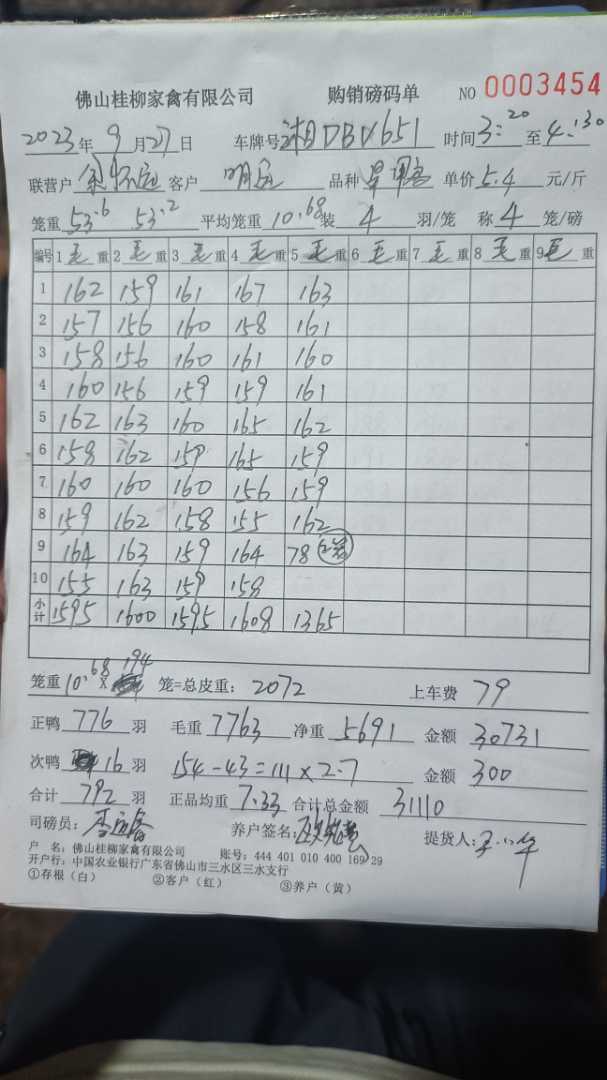 佛山桂柳家禽有限公司 购销磅码单 NO 0003454
2023年9月27日 车牌号湘DBV651 时间3:20至4:30
联营户 客户 明运 品种 单价5.4元/斤
笼重53.6 53.2 平均笼重10.68装4羽/笼 称4笼/磅
编号 1毛重 2毛重 3毛重 4毛重 5毛重 6毛重 7毛重 8毛重 9毛重
1 162 159 161 167 163
2 157 156 160 158 161
3 158 156 160 161 160
4 160 156 159 159 161
5 162 163 160 165 162
6 158 162 159 165 159
7 160 160 160 156 159
8 159 162 158 155 162
9 164 163 159 164 78
10 155 163 159 158
小计 1595 1600 1595 1608 1365
笼重10.68 x 194 笼=总皮重:2072 上车费 79
正鸭 776 羽 毛重 7763 净重 5691 金额 30731
次鸭 16 羽 154-43=111×2.7 金额 300
合计 792 羽 正品均重 7.33 合计总金额 31110
司磅员: 养户签名: 提货人:
户 名:佛山桂柳家禽有限公司 账号:444 401 010 400 169 29
开户行:中国农业银行广东省佛山市三水区三水支行
①存根(白) ②客户(红) ③养户(黄)